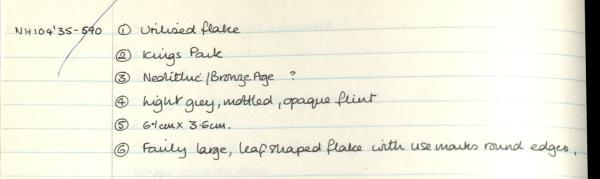 NH104'35-590 ① Utilised flake
② Kings Park
③ Neolithic/Bronze Age ?
④ Light grey, mottled, opaque flint
⑤ 6.1cm x 3.6cm.
⑥ Fairly large, leaf shaped flake with use marks round edges.